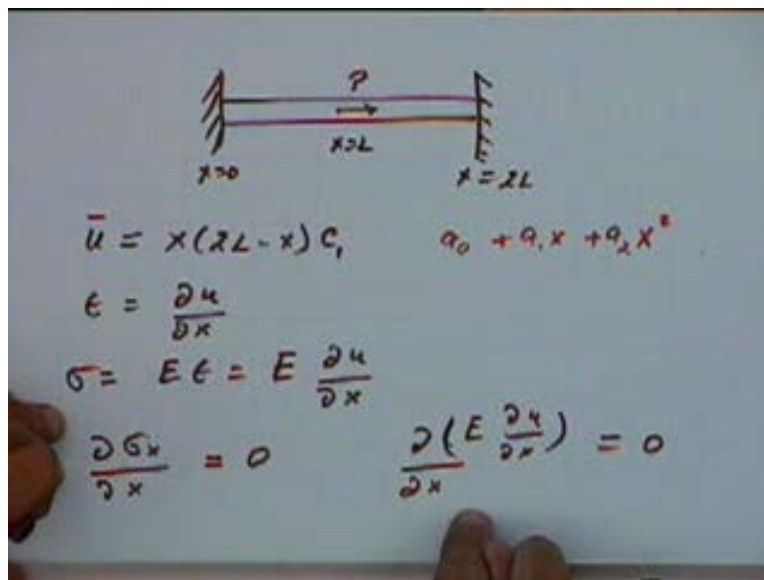 P
x=L
x=0 x = 2L
ū = x(2L-x)C₁ a₀ + a₁x + a₂x²
ϵ = ∂u/∂x
σ = Eϵ = E ∂u/∂x
∂σx/∂x = 0 ∂(E ∂u/∂x)/∂x = 0